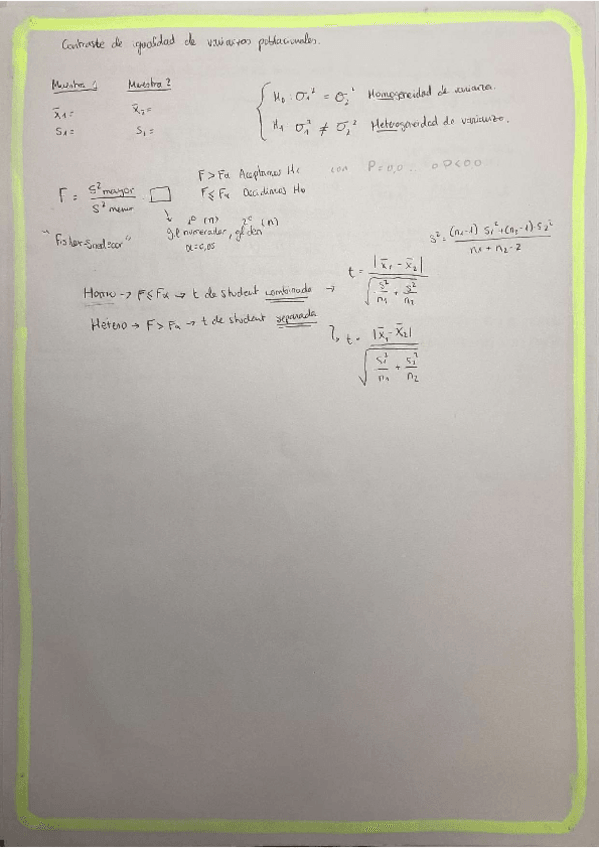 Contraste de igualdad de varianzas poblacionales.
Muestra 1 Muestra 2
x̄₁ = x̄₂ =
S₁ = S₁ =
H₀ : σ₁² = σ₂² Homogeneidad de varianza.
H₁ σ₁² ≠ σ₂² Heterogeneidad de varianza.
F = S² mayor / S² menor
F > Fα Aceptamos H₁ con P = 0,0... o P < 0.0
F ≤ Fα Decidimos H₀
1º (n) 2º (n)
gl numerador, gl den
α = 0,05
"Fisher-Snedecor"
S² = (n₁-1) S₁² + (n₂-1) · S₂² / n₁ + n₂ - 2
Homo → F ≤ Fα → t de student combinada → t = |x̄₁ - x̄₂| / √(S²/n₁ + S²/n₂)
Hetero → F > Fα → t de student separada
t = |x̄₁ - x̄₂| / √(S₁²/n₁ + S₂²/n₂)